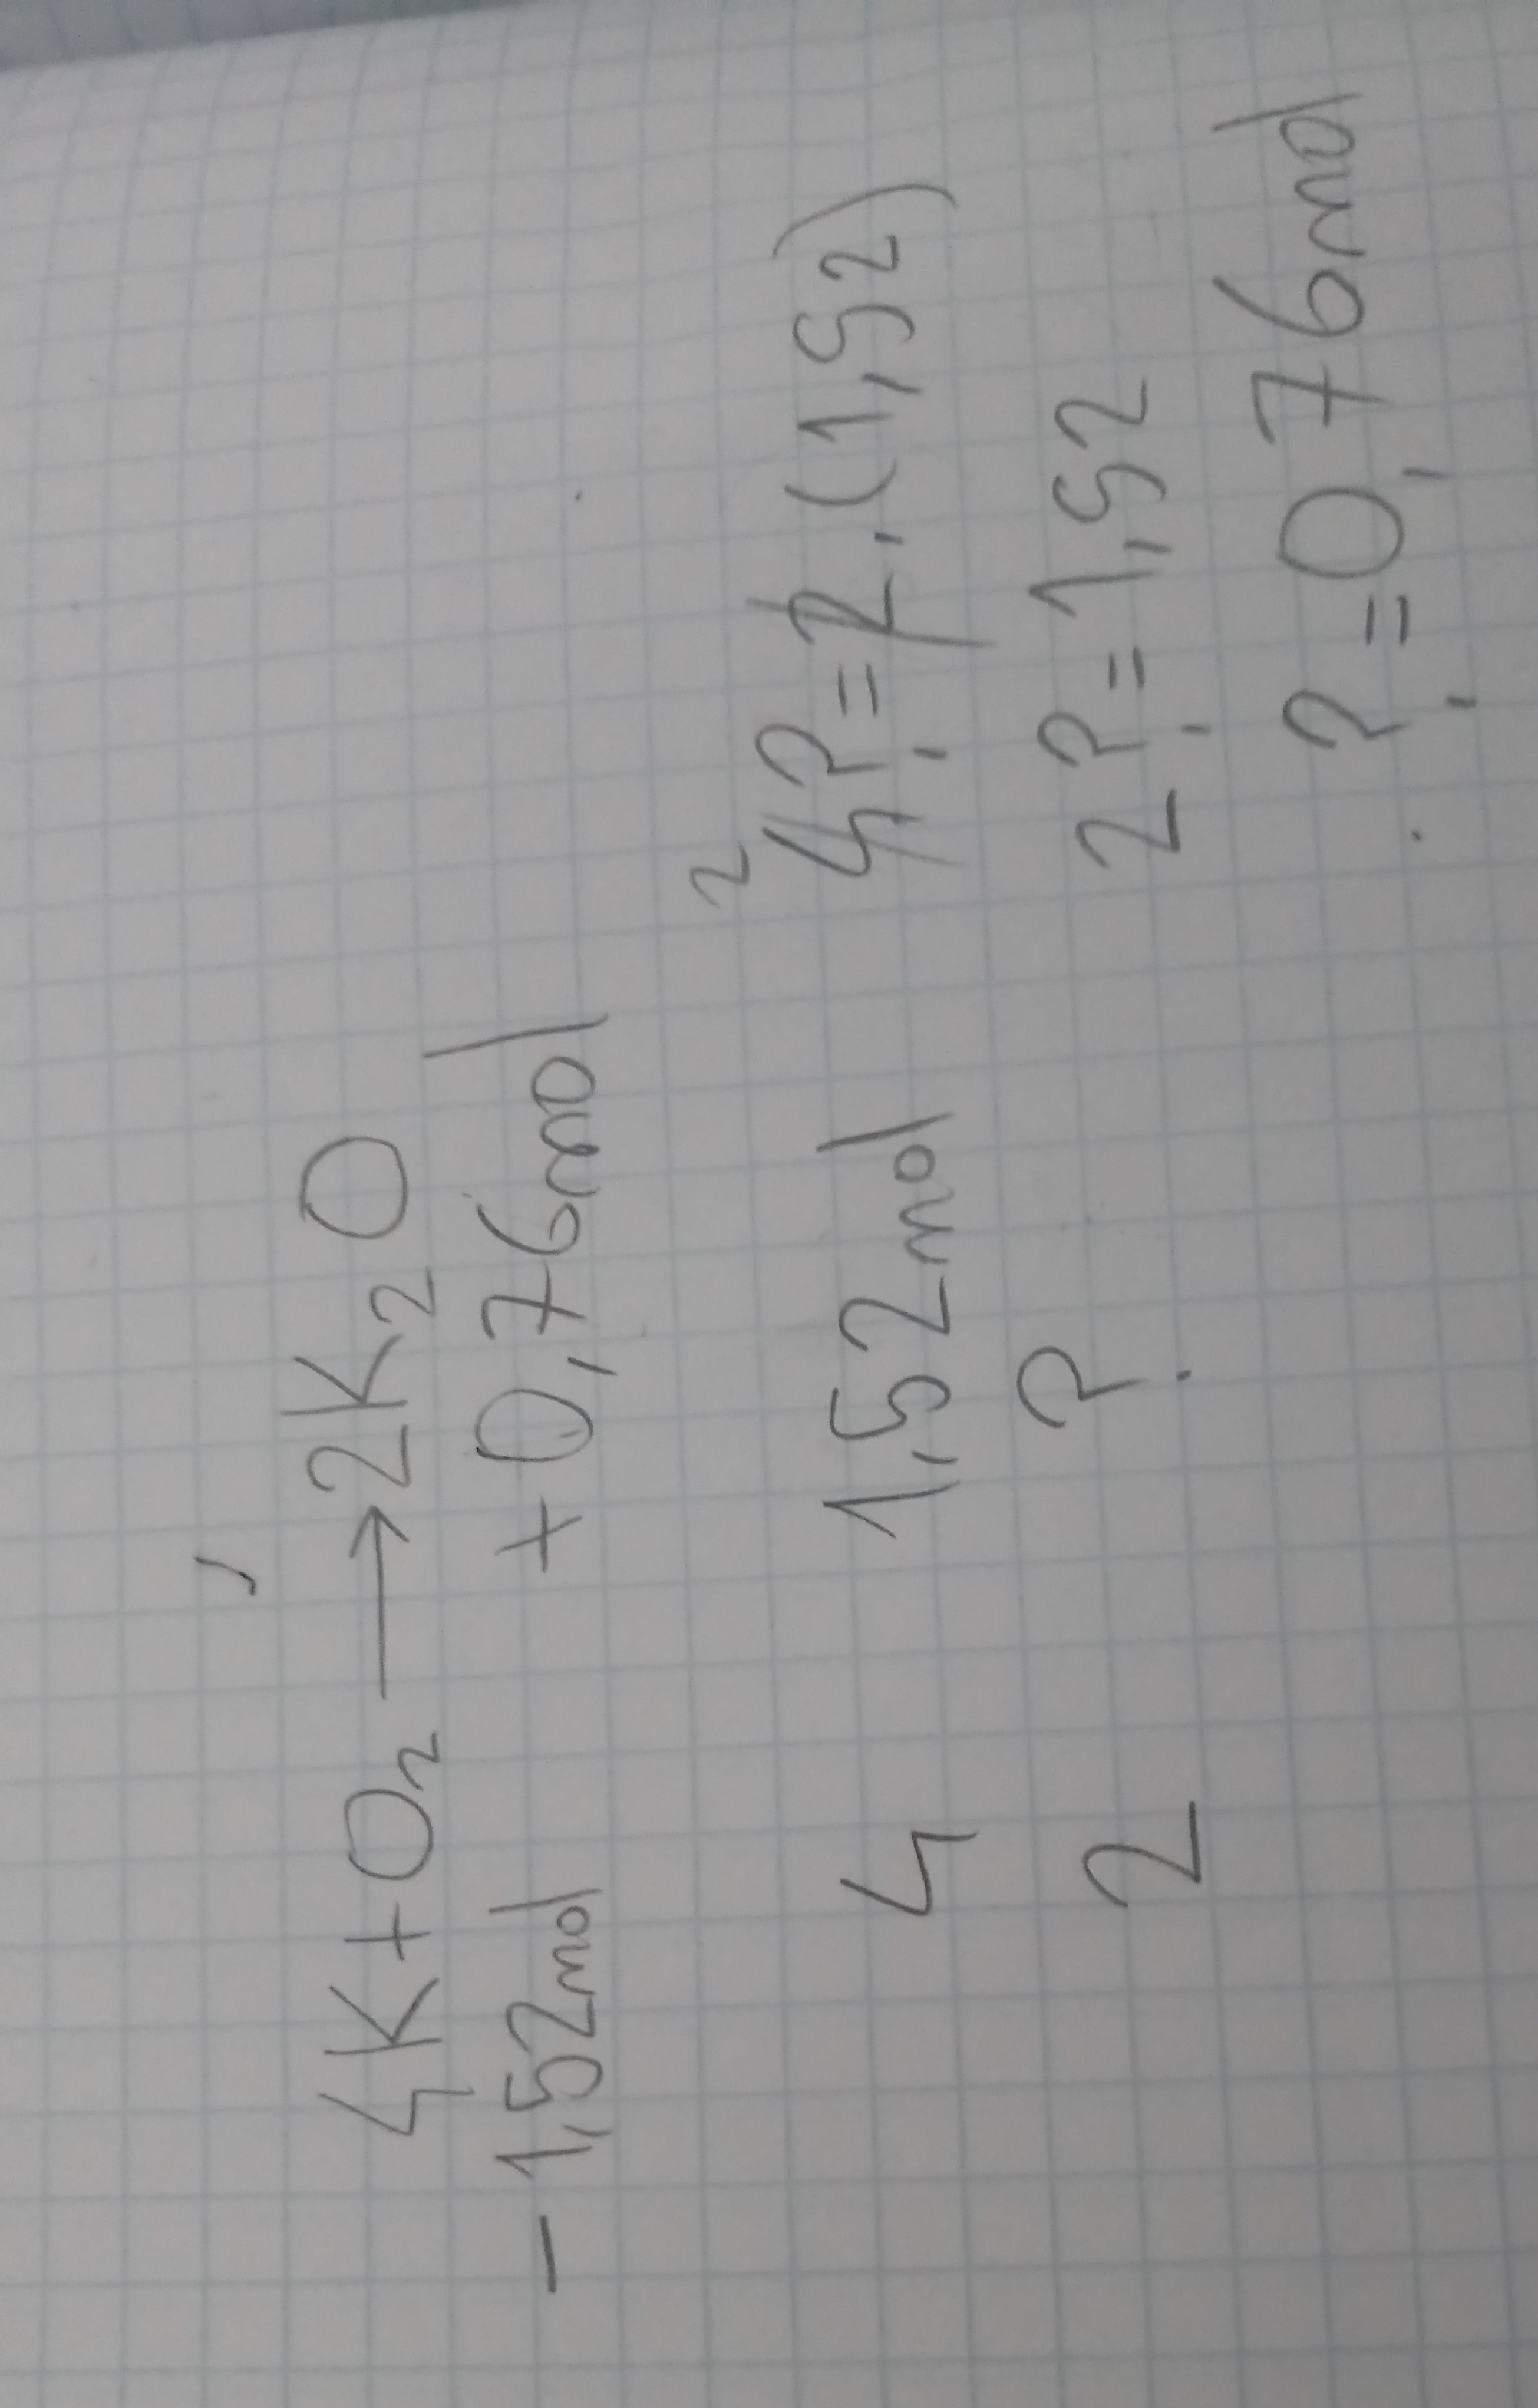 4K + O₂ → 2K₂O
- 1,52mol + 0,76mol
2
4 1,52mol 4? = 2.(1,52)
2 ? 2? = 1,52
? = 0,76mol